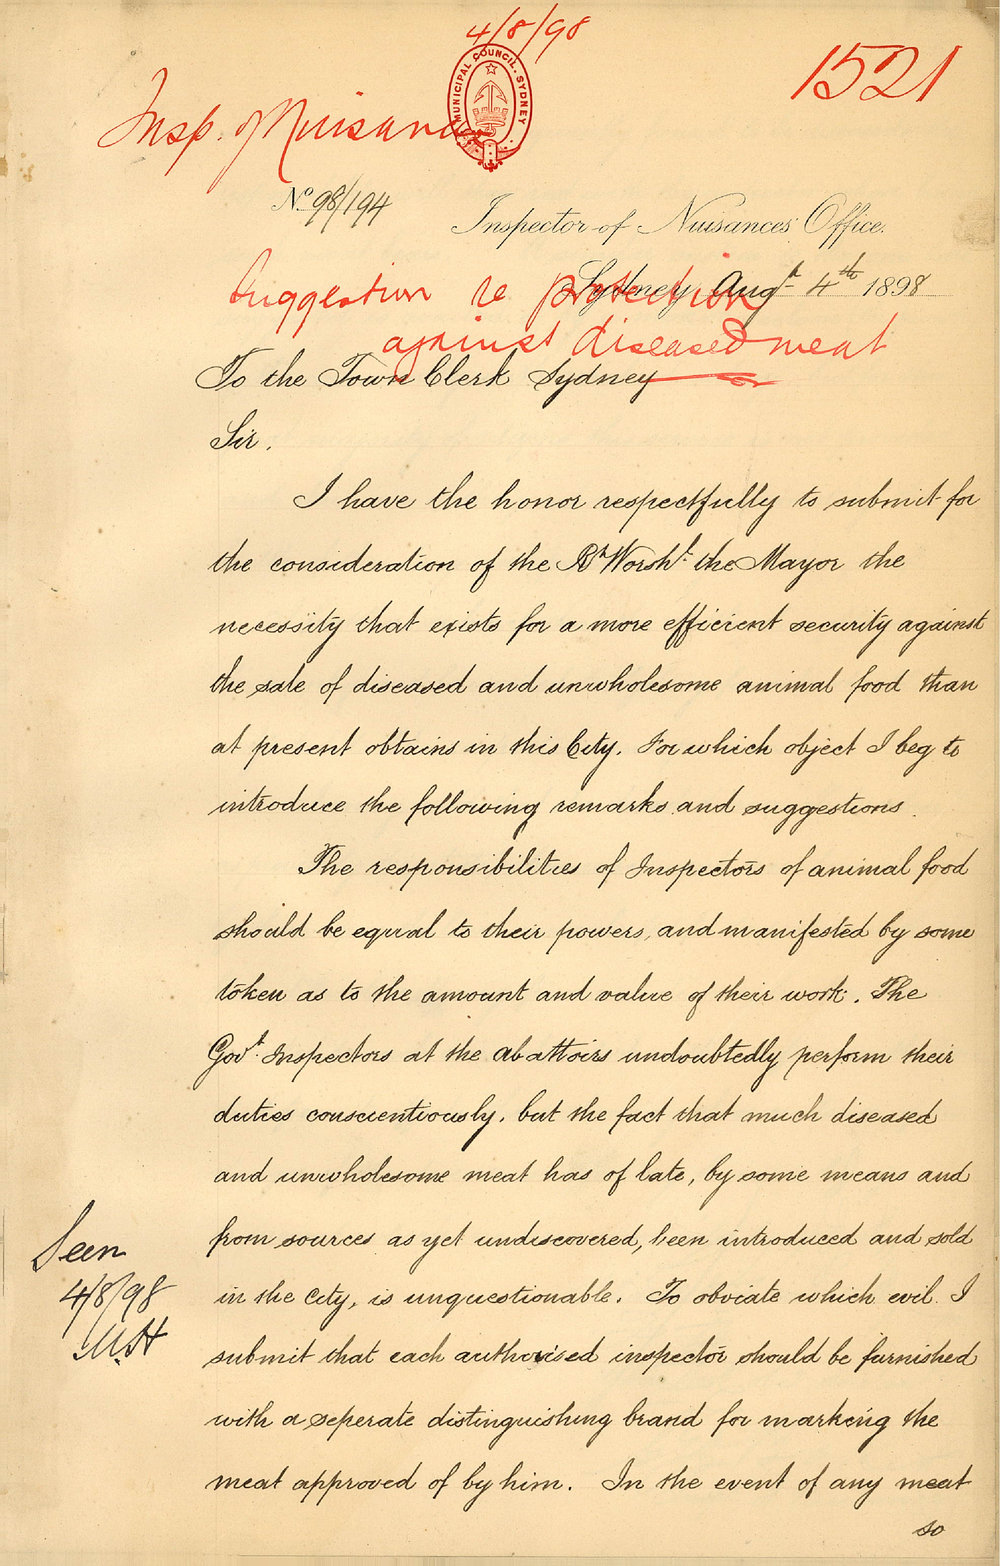 4/8/98
1521
MUNICIPAL COUNCIL. SYDNEY
Insp. of Nuisances
No 98/194
Inspector of Nuisances' Office.
Sydney Augt 4th 1898
Suggestion re protection
against diseased meat
To the Town Clerk Sydney
Sir.
I have the honor respectfully to submit for
the consideration of the Rt Worshl. the Mayor the
necessity that exists for a more efficient security against
the sale of diseased and unwholesome animal food than
at present obtains in this City. For which object I beg to
introduce the following remarks and suggestions.
The responsibilities of Inspectors of animal food
should be equal to their powers, and manifested by some
token as to the amount and value of their work. The
Govt. Inspectors at the abattoirs undoubtedly perform their
duties conscientiously, but the fact that much diseased
and unwholesome meat has of late, by some means and
from sources as yet undiscovered, been introduced and sold
in the City, is unquestionable. To obviate which evil I
submit that each authorised inspector should be furnished
with a seperate distinguishing brand for marking the
meat approved of by him. In the event of any meat
so
Seen
4/8/98
M.H